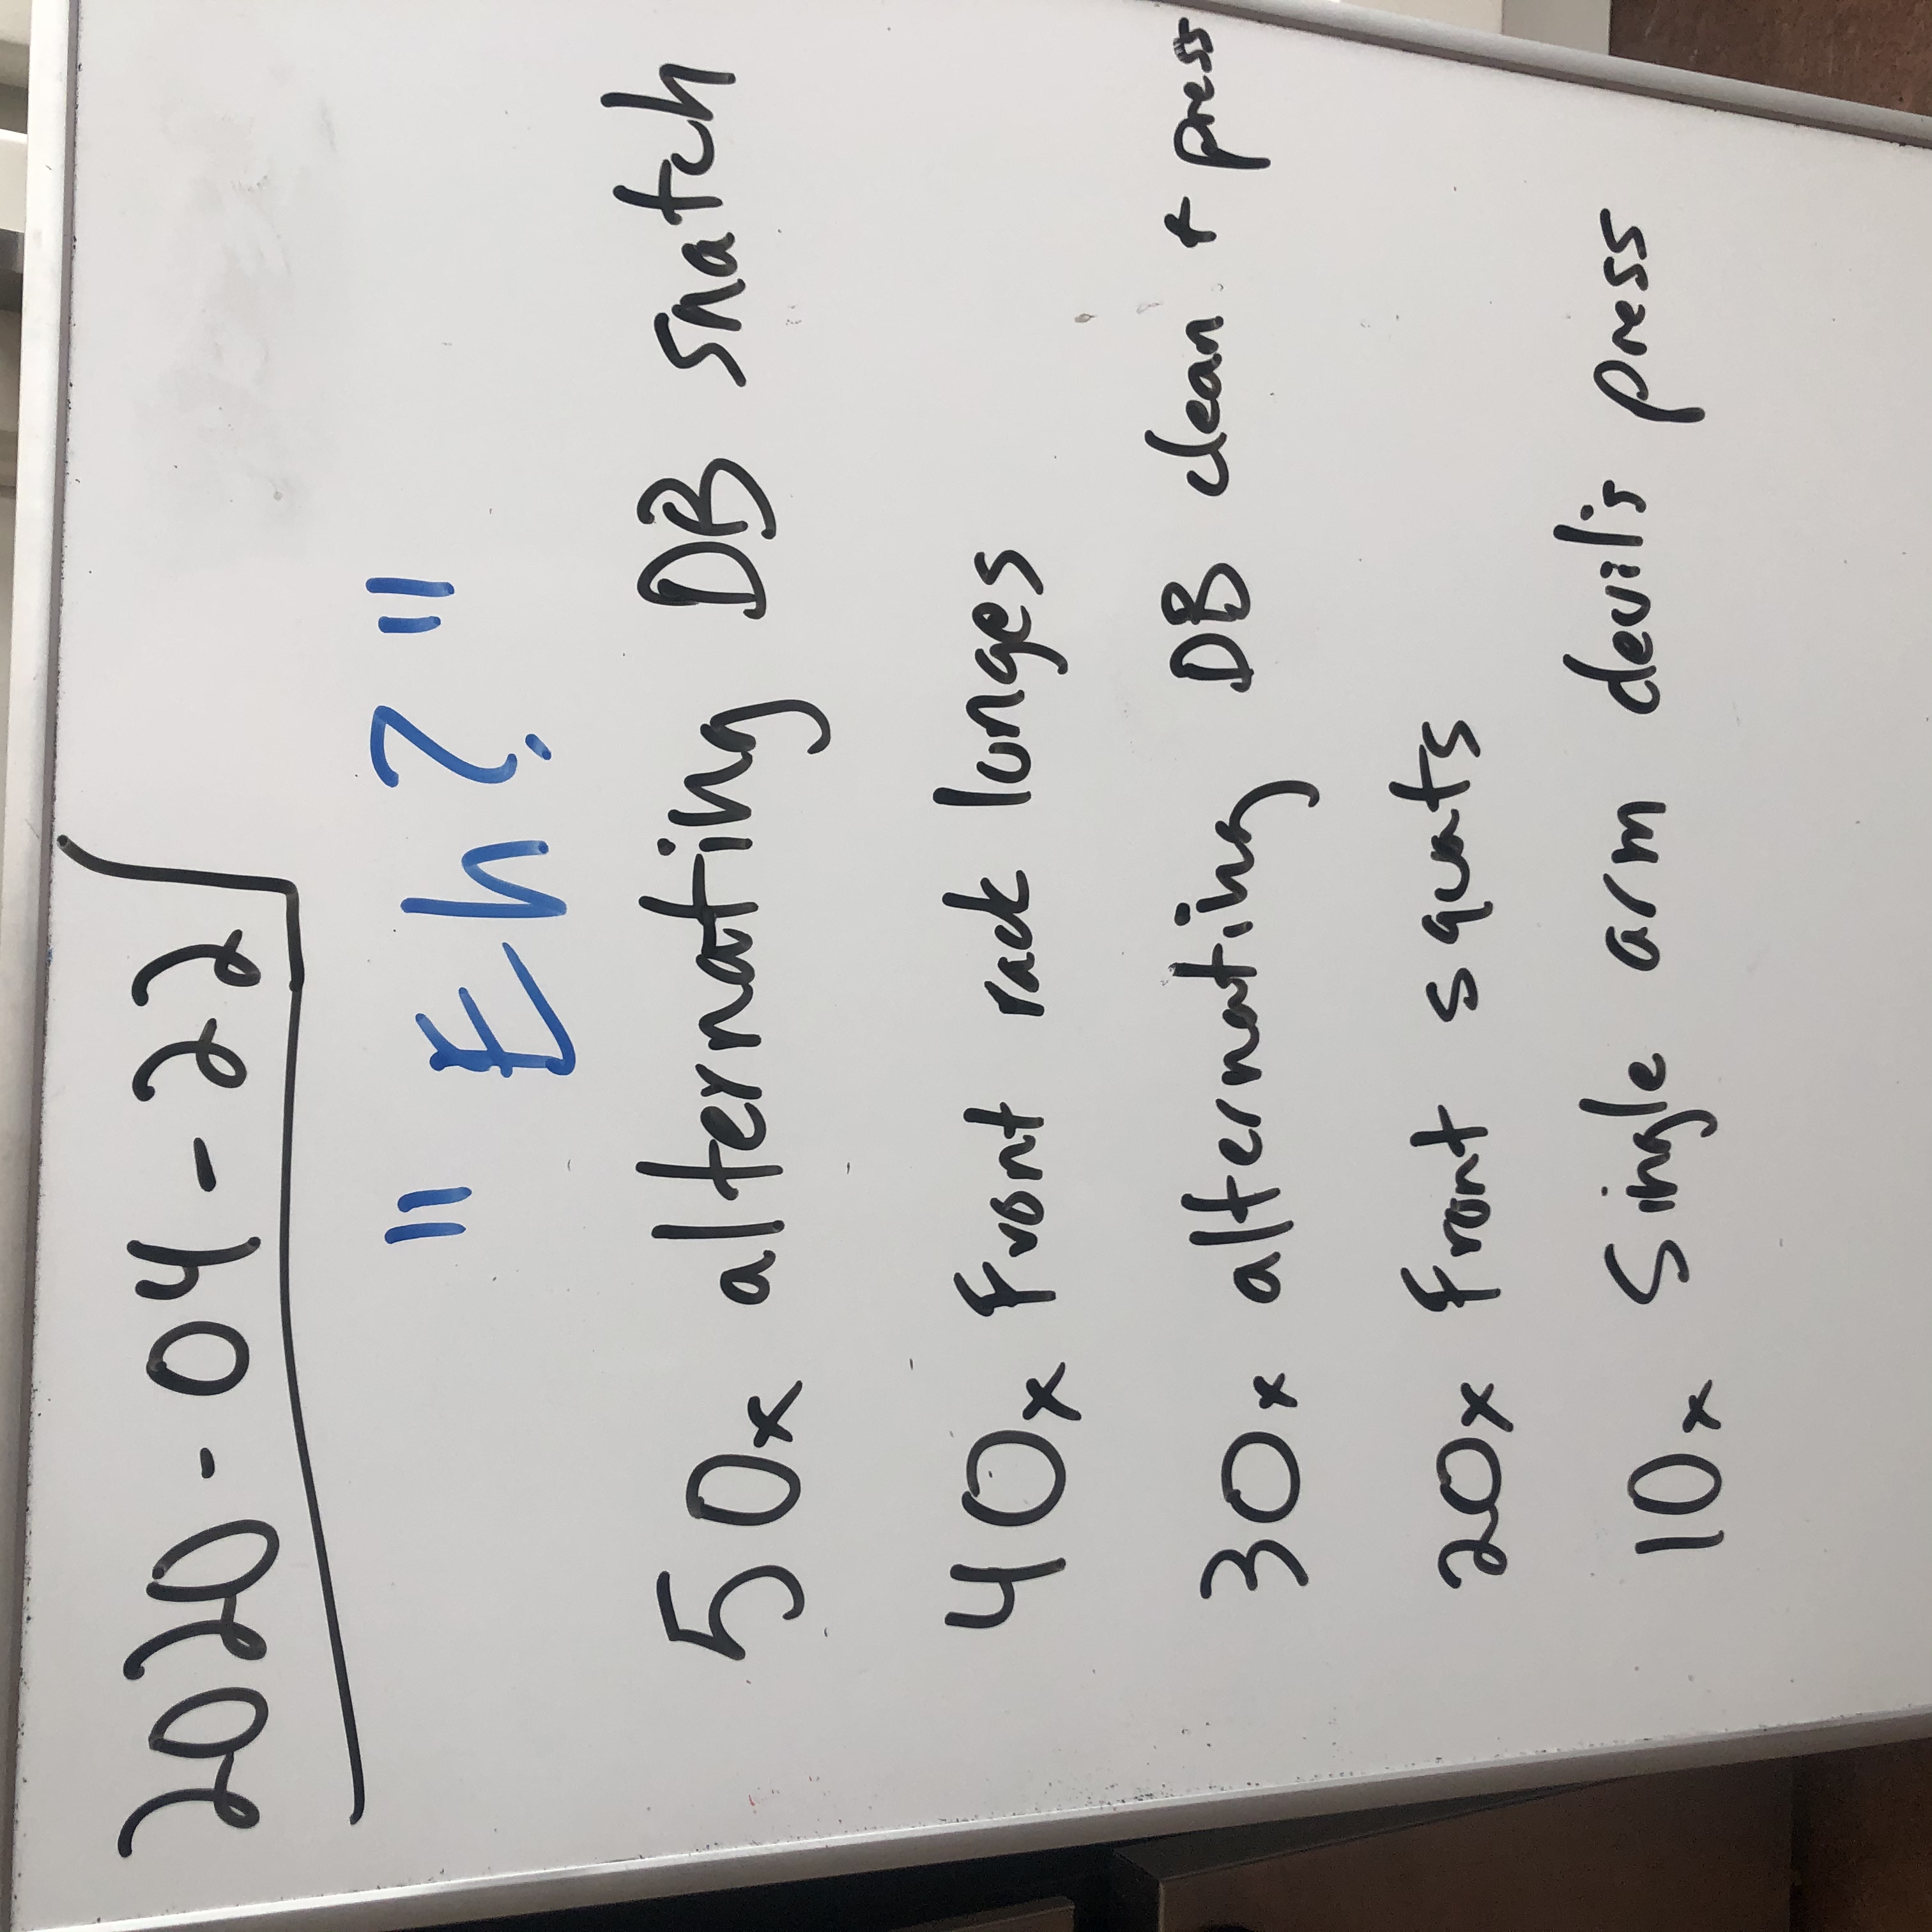 2020-04-22
"Eh?"
50x alternating DB snatch
40x Front rack lunges
30x alternating DB clean + press
20x Front squats
10x Single arm devil's press